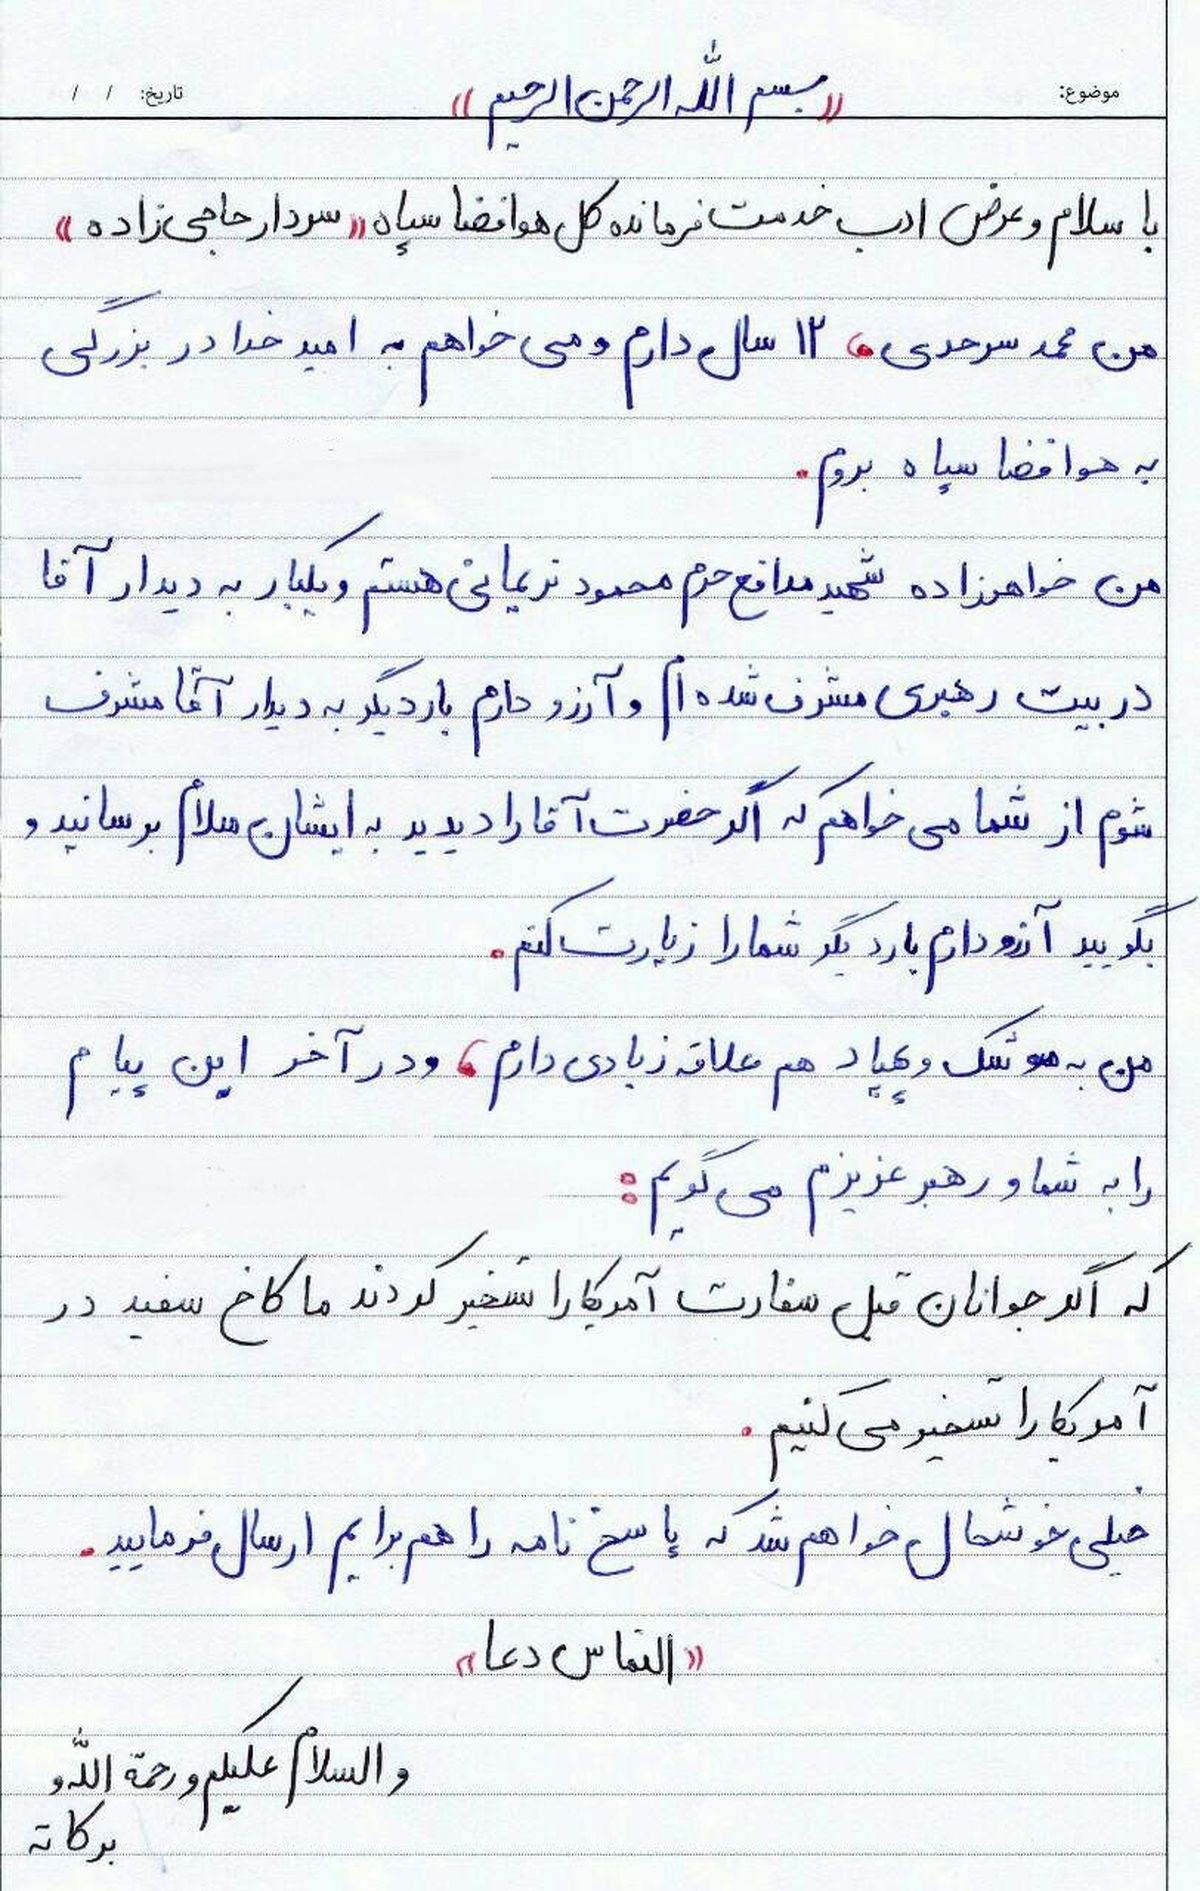 موضوع:
«بسم الله الرحمن الرحیم»
تاریخ: / /
با سلام و عرض ادب خدمت فرمانده کل هوافضا سپاه «سردار حاجی زاده»
من محمد سرحدی، ۱۲ سال دارم و می خواهم به امید خدا در بزرگی
به هوافضا سپاه بروم.
من خواهرزاده شهید مدافع حرم محمود نریمانی هستم و یکبار به دیدار آقا
در بیت رهبری مشرف شده ام و آرزو دارم بار دیگر به دیدار آقا مشرف
شوم از شما می خواهم که اگر حضرت آقا را دیدید به ایشان سلام برسانید و
بگویید آرزو دارم بار دیگر شما را زیارت کنم.
من به موشک و پهپاد هم علاقه زیادی دارم، و در آخر این پیام
را به شما و رهبر عزیزم می گویم:
که اگر جوانان قبل سفارت آمریکا را تسخیر کردند ما کاخ سفید در
آمریکا را تسخیر می کنیم.
خیلی خوشحال خواهم شد که پاسخ نامه را هم برایم ارسال فرمایید.
«التماس دعا»
والسلام علیکم و رحمة الله و
برکاته